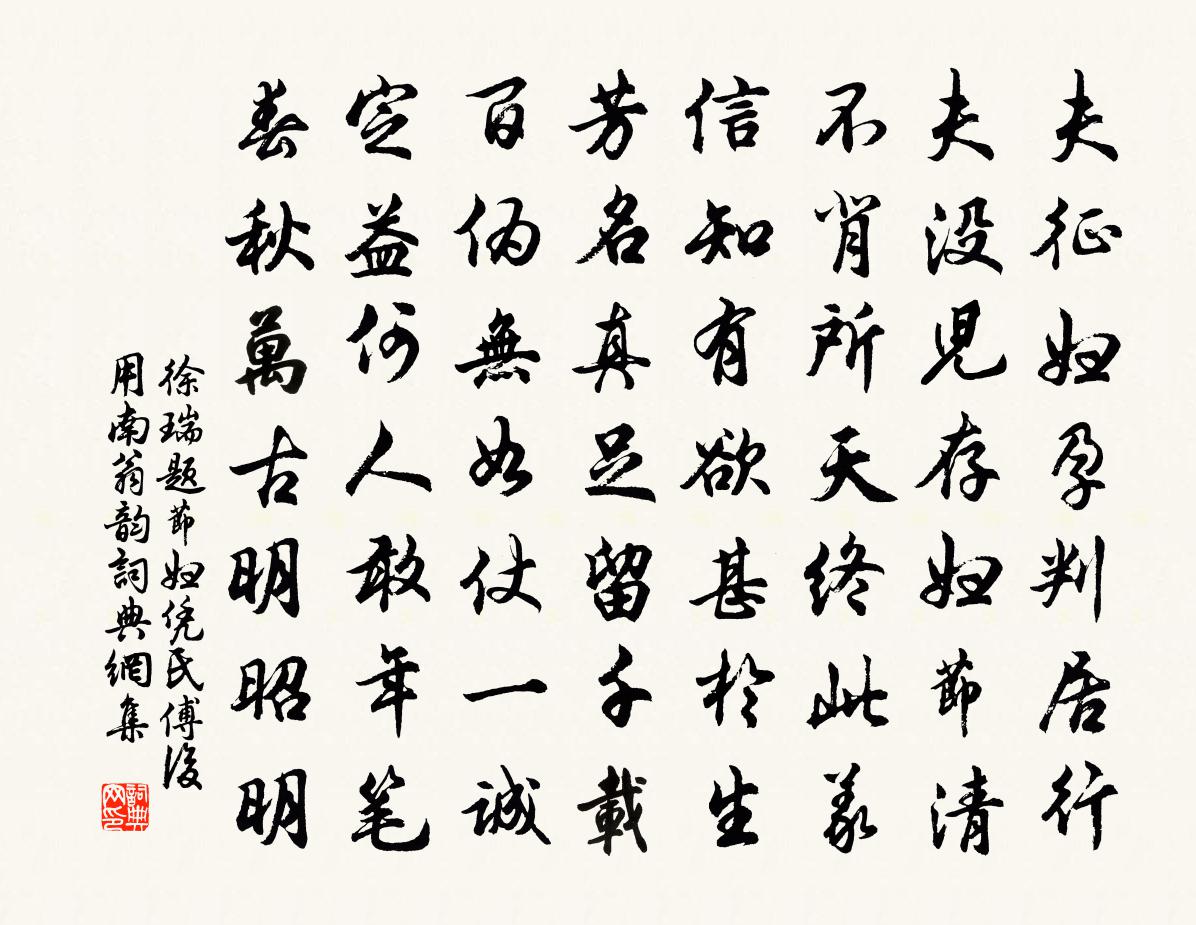 夫征妇孕判居行
夫没児存妇節清
不肖所天终此義
信知有欲甚於生
芳名真足留千載
百伪無如仗一誠
定益何人敢年笔
春秋萬古明昭明
徐瑞题節妇凭氏傅後
用南翁韵詞典網集
詞典网印